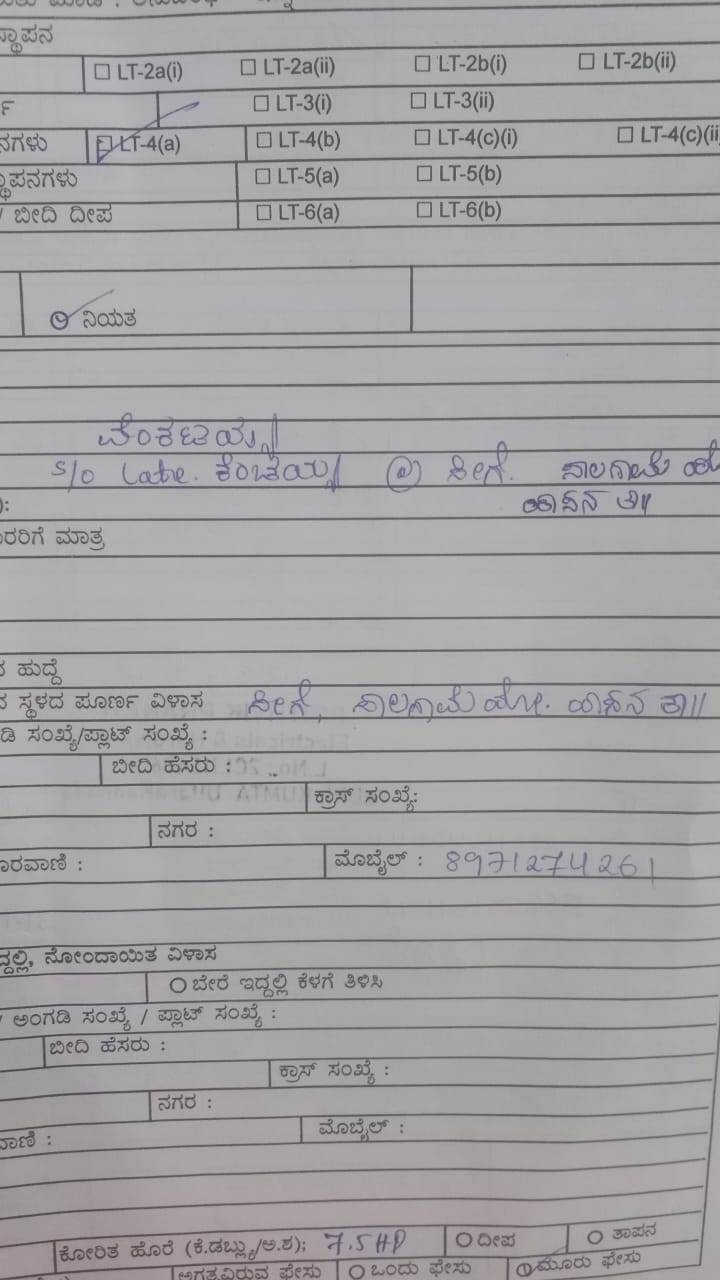 ಸ್ಥಾಪನ
☐ LT-2a(i) ☐ LT-2a(ii) ☐ LT-2b(i) ☐ LT-2b(ii)
☐ LT-3(i) ☐ LT-3(ii)
ನಗಳು ☐ LT-4(a) ☐ LT-4(b) ☐ LT-4(c)(i) ☐ LT-4(c)(ii
ಸ್ಥಾಪನಗಳು ☐ LT-5(a) ☐ LT-5(b)
/ ಬೀದಿ ದೀಪ ☐ LT-6(a) ☐ LT-6(b)
ನಿಯತ
ವೆಂಕಟಯ್ಯ
S/o Late. ಕೆಂಚಯ್ಯ @ ಸೀಗೆ. ಸಾಲಗಾಮೆ ಹೋ
ಹಾಸನ ತಾ||
):
ದಾರರಿಗೆ ಮಾತ್ರ
ಹುದ್ದೆ
ನ ಸ್ಥಳದ ಪೂರ್ಣ ವಿಳಾಸ ಸೀಗೆ, ಸಾಲಗಾಮೆ ಹೋ. ಹಾಸನ ತಾ||
ಡಿ ಸಂಖ್ಯೆ/ಪ್ಲಾಟ್ ಸಂಖ್ಯೆ :
ಬೀದಿ ಹೆಸರು :
ಕ್ರಾಸ್ ಸಂಖ್ಯೆ:
ನಗರ :
ೂರವಾಣಿ : ಮೊಬೈಲ್ : 8971274261
ದ್ದಲ್ಲಿ, ನೋಂದಾಯಿತ ವಿಳಾಸ
ಬೇರೆ ಇದ್ದಲ್ಲಿ ಕೆಳಗೆ ತಿಳಿಸಿ
/ ಅಂಗಡಿ ಸಂಖ್ಯೆ / ಪ್ಲಾಟ್ ಸಂಖ್ಯೆ :
ಬೀದಿ ಹೆಸರು :
ಕ್ರಾಸ್ ಸಂಖ್ಯೆ :
ನಗರ :
ವಾಣಿ : ಮೊಬೈಲ್ :
ಕೋರಿತ ಹೊರೆ (ಕೆ.ಡಬ್ಲ್ಯು/ಅ.ಶ); 7.5 HP ದೀಪ ತಾಪನ
ಅಗತ್ಯವಿರುವ ಫೇಸು ಒಂದು ಫೇಸು ಮೂರು ಫೇಸು